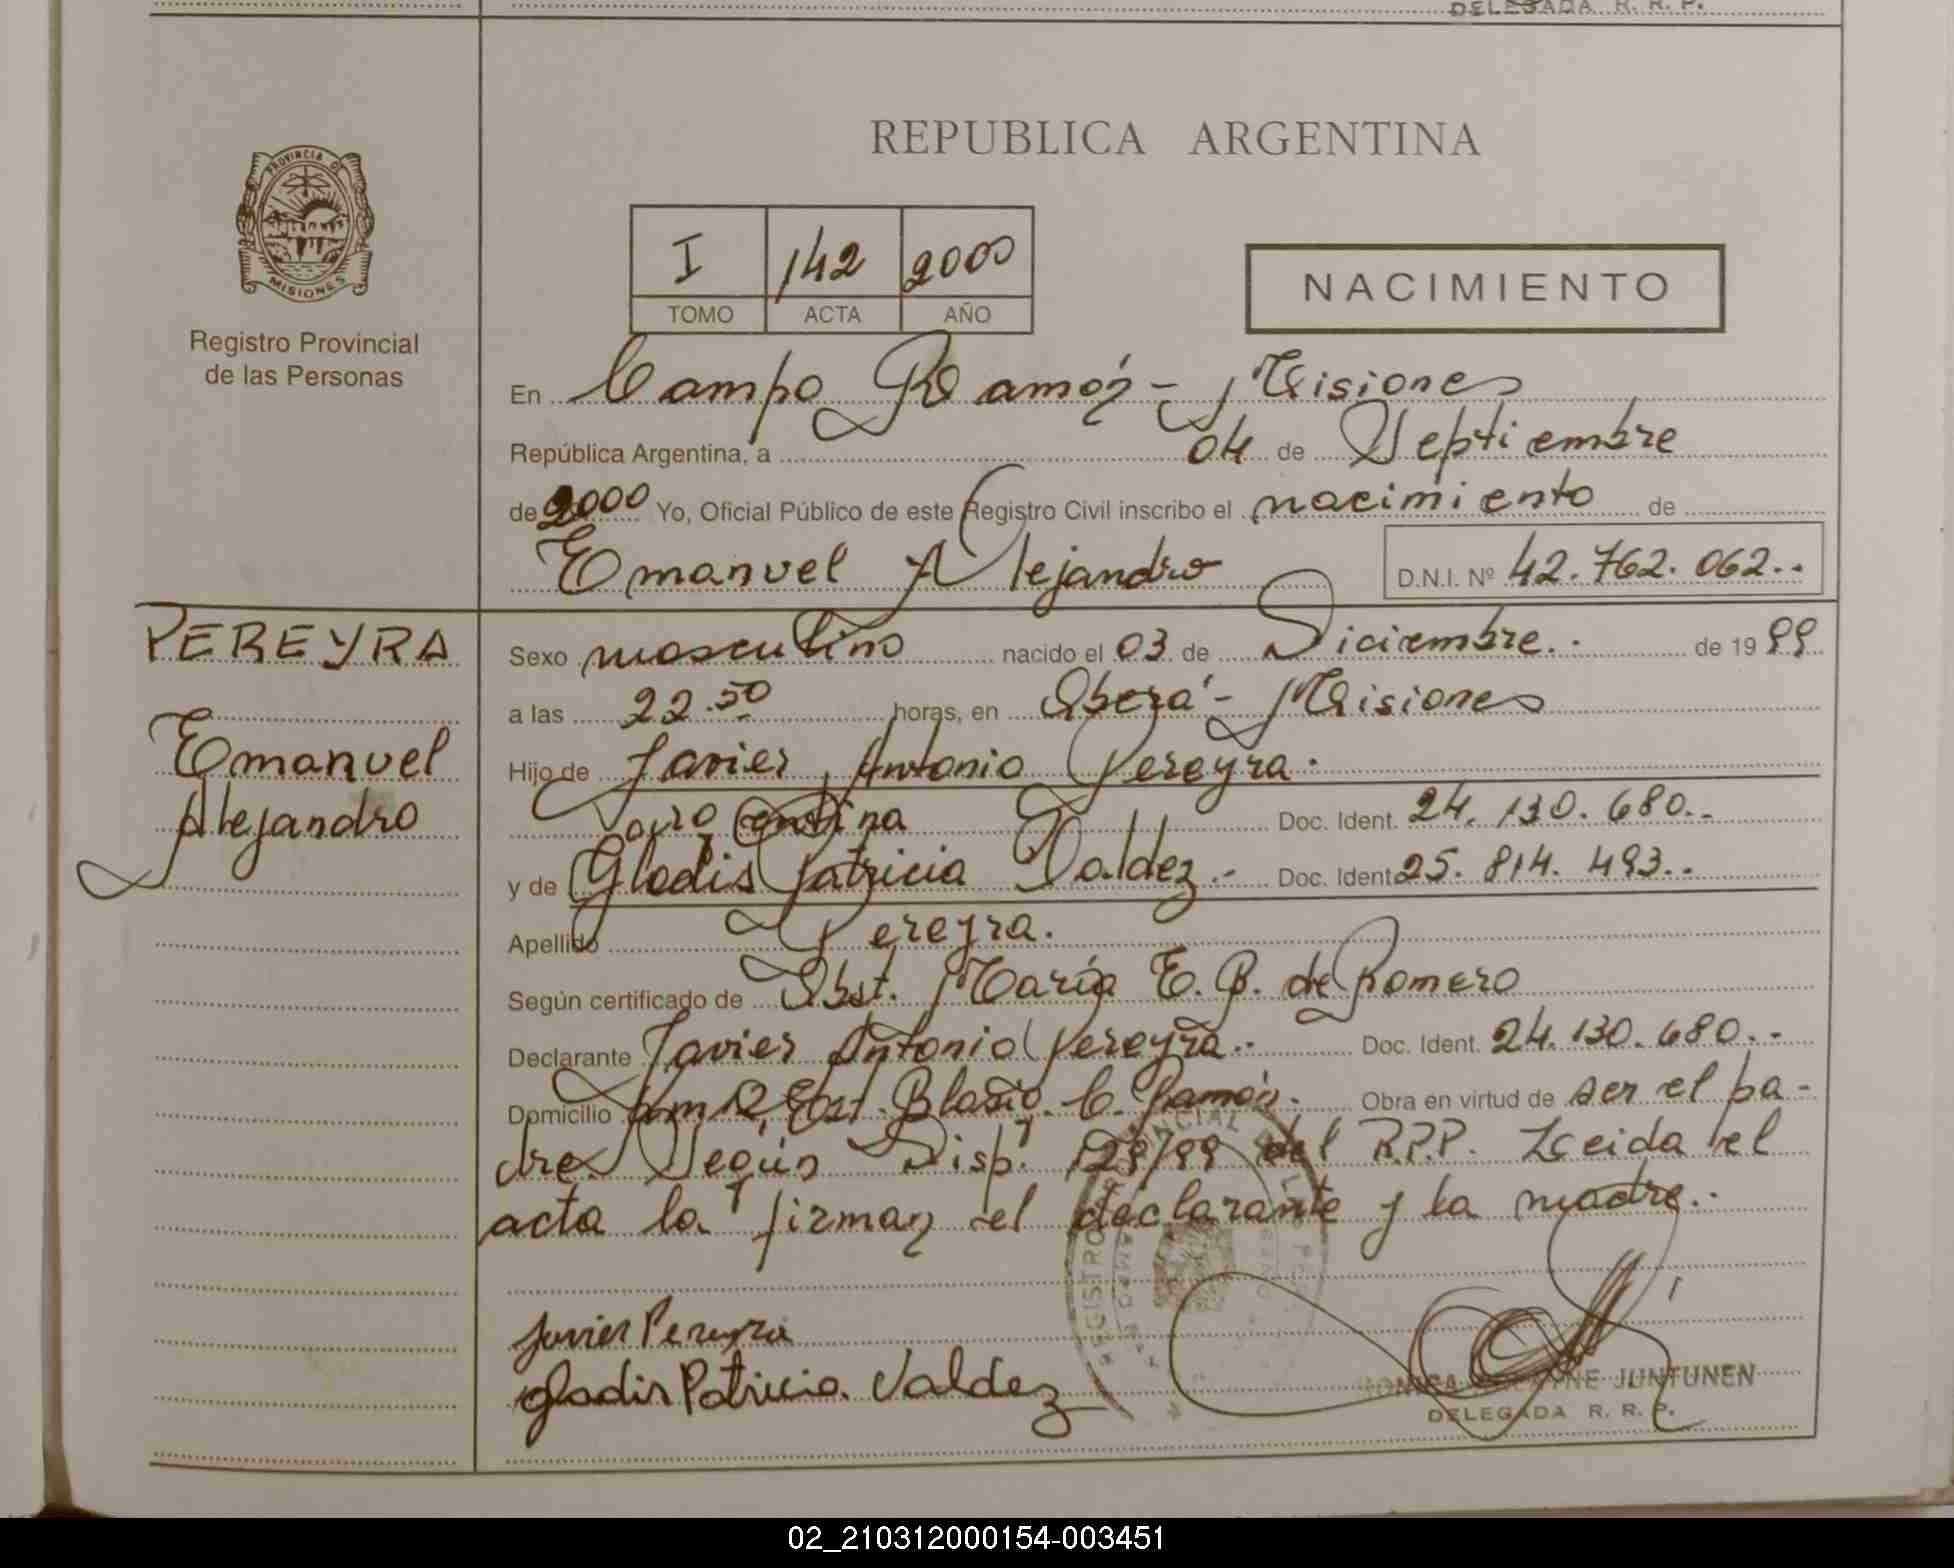 DELEGADA R. R. P.
REPUBLICA ARGENTINA
PROVINCIA DE
MISIONES
Registro Provincial
de las Personas
I 142 2000
TOMO ACTA AÑO
NACIMIENTO
En Campo Ramón - Misiones
República Argentina, a 04 de Septiembre
de 2000 Yo, Oficial Público de este Registro Civil inscribo el nacimiento de
Emanuel Alejandro D.N.I. Nº 42.762.062..
PEREYRA
Emanuel
Alejandro
Sexo masculino nacido el 03 de Diciembre.. de 1999
a las 22.50 horas, en Oberá - Misiones
Hijo de Javier Antonio Pereyra.
Doc. Ident. 24.130.680..
y de Gladis Patricia Valdez.- Doc. Ident. 25.814.493..
Apellido Pereyra.
Según certificado de Obst. María E. B. de Romero
Declarante Javier Antonio Pereyra.. Doc. Ident. 24.130.680..
Domicilio Km 12 Blasio. C. Ramón. Obra en virtud de ser el pa-
dre. Según Disp. 128/99 del R.P.P. Leida el
acta la firman el declarante y la madre..
Javier Pereyra
Gladis Patricia Valdez
JUNTUNEN
DELEGADA R. R. P.
02_210312000154-003451